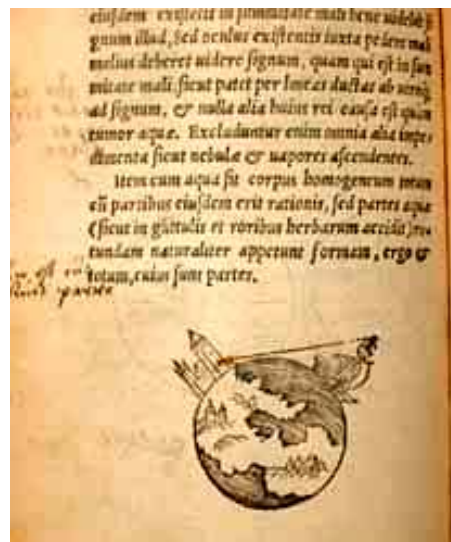 eiusdem existētis in summitate mali bene uidebit
gnum illud, Sed oculus existentis iuxta pedem mali
melius deberet uidere signum, quam qui est in sum
mitate mali, sicut patet per lineas ductas ab utroq;
ad signum, & nulla alia huius rei causa est quam
tumor aquæ. Excluduntur enim omnia alia impe
dimenta sicut nebulæ & uapores ascendentes.
Item cum aqua sit corpus homogeneum totum
cū partibus eiusdem erit rationis, sed partes aquæ
(sicut in guttulis et roribus herbarum accidit) ro
tundam naturaliter appetunt formam, ergo &
totum, cuius sunt partes.